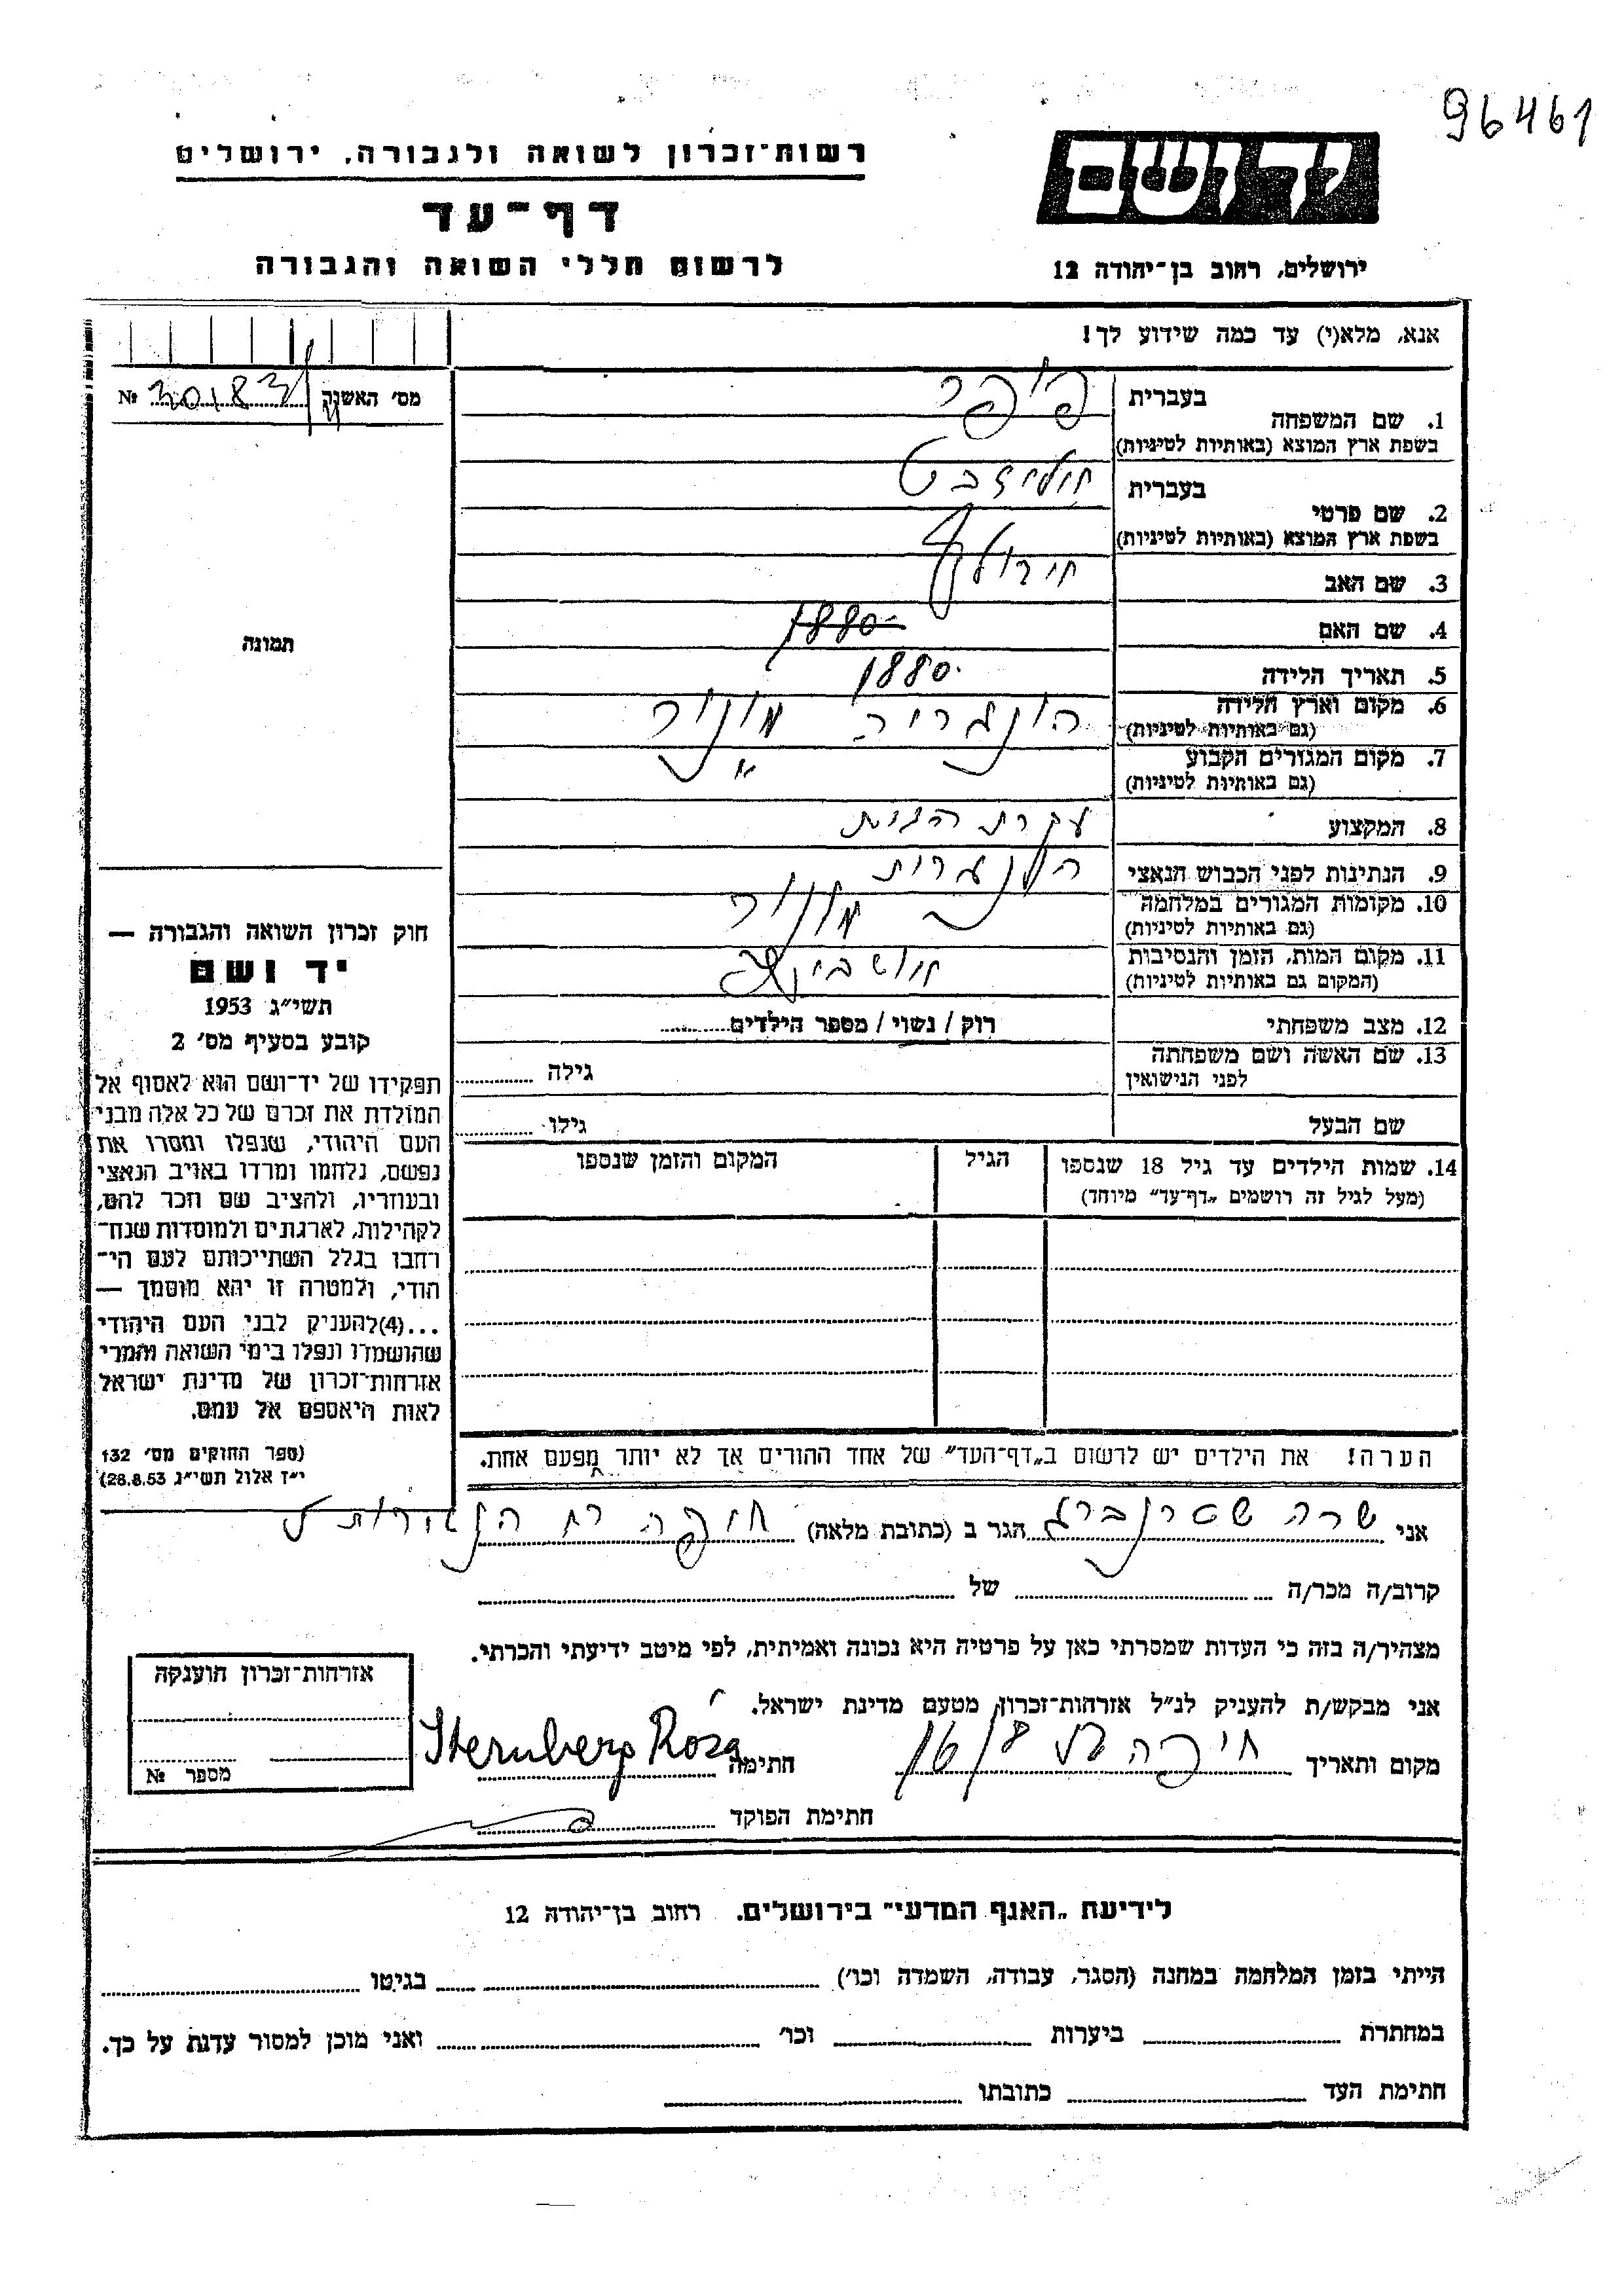 96461
יד ושם
רשות־זכרון לשואה ולגבורה, ירושלים
דף־עד
לרשום חללי השואה והגבורה
ירושלים, רחוב בן־יהודה 12
אנא, מלא(י) עד כמה שידוע לך!
מס׳ האשנה № 30183
תמונה
בעברית
1. שם המשפחה
בשפת ארץ המוצא (באותיות לטיניות)
בעברית
2. שם פרטי
בשפת ארץ המוצא (באותיות לטיניות)
3. שם האב
4. שם האם 1880
5. תאריך הלידה 1880
6. מקום וארץ הלידה הונגריה
(גם באותיות לטיניות)
7. מקום המגורים הקבוע
(גם באותיות לטיניות)
8. המקצוע עקרת הבית
9. הנתינות לפני הכבוש הנאצי הונגרית
10. מקומות המגורים במלחמה
(גם באותיות לטיניות)
11. מקום המות, הזמן והנסיבות אושביץ
(המקום גם באותיות לטיניות)
12. מצב משפחתי רוק / נשוי / מספר הילדים
13. שם האשה ושם משפחתה
לפני הנישואין גילה
שם הבעל גילו
14. שמות הילדים עד גיל 18 שנספו הגיל המקום והזמן שנספו
(מעל לגיל זה רושמים „דף־עד״ מיוחד)
הערה! את הילדים יש לרשום ב„דף־העד״ של אחד ההורים אך לא יותר מפעם אחת.
חוק זכרון השואה והגבורה —
יד ושם
תשי״ג 1953
קובע בסעיף מס׳ 2
תפקידו של יד־ושם הוא לאסוף אל
המולדת את זכרם של כל אלה מבני
העם היהודי, שנפלו ומסרו את
נפשם, נלחמו ומרדו באויב הנאצי
ובעוזריו, ולהציב שם וזכר להם,
לקהילות, לארגונים ולמוסדות שנח־
רחבו בגלל השתייכותם לעם הי־
הודי, ולמטרה זו יהא מוסמך —
...(4)להעניק לבני העם היהודי
שהושמדו ונפלו בימי השואה והמרי
אזרחות־זכרון של מדינת ישראל
לאות היאספם אל עמם.
(ספר החוקים מס׳ 132
י״ז אלול תשי״ג 28.8.53)
אני שרה שטרנברג הגר ב (כתובת מלאה) חיפה רח
קרוב/ה מכר/ה של
מצהיר/ה בזה כי העדות שמסרתי כאן על פרטיה היא נכונה ואמיתית, לפי מיטב ידיעתי והכרתי.
אני מבקש/ת להעניק לנ״ל אזרחות־זכרון מטעם מדינת ישראל.
מקום ותאריך חיפה חתימה Sternberg Rosa
חתימת הפוקד
אזרחות־זכרון הוענקה
מספר №
לידיעת „האגף המדעי״ בירושלים. רחוב בן־יהודה 12
הייתי בזמן המלחמה במחנה (הסגר, עבודה, השמדה וכו׳) בגיטו
במחתרת ביערות וכו׳ ואני מוכן למסור עדות על כך.
חתימת העד כתובתו